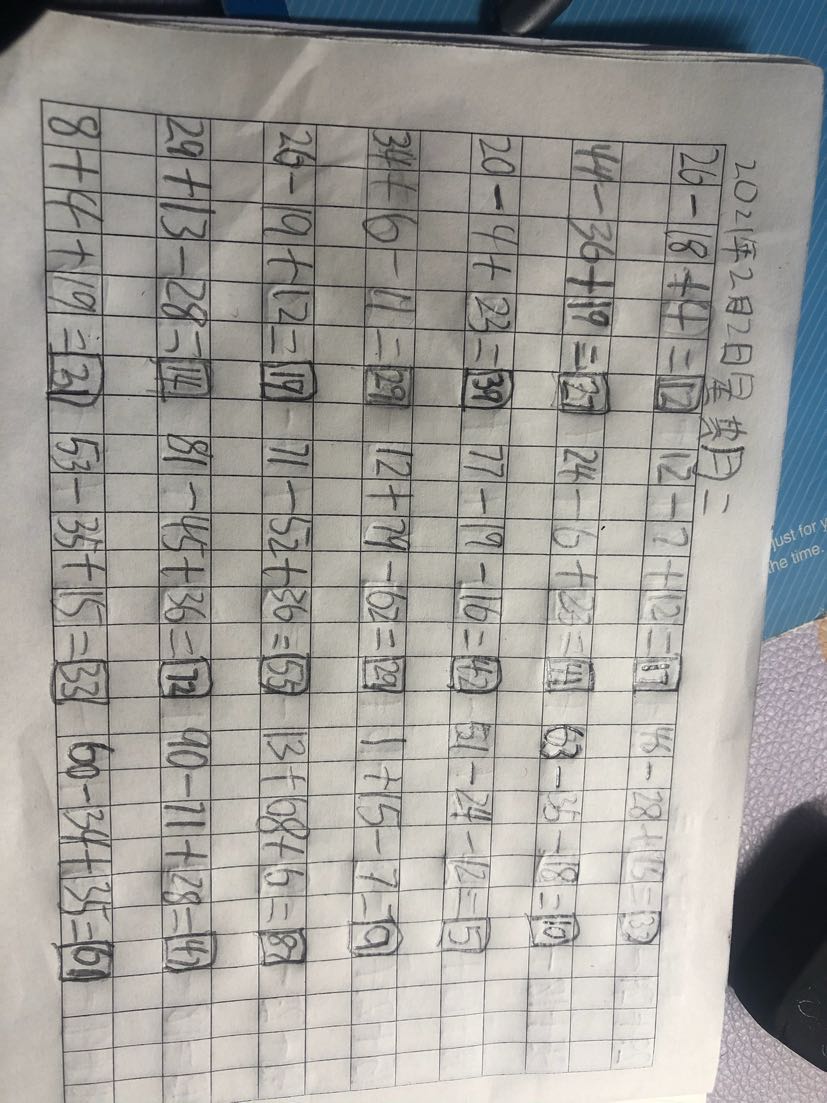 2021年2月2日星期二
26-18+4=12 12-7+12=17 -28+16=33
44-36+19=27 24-6+23=41 63-35-18=10
20-4+23=39 77-19-16=42 51-24-12=15
34+6-11=29 12+79-62=29 1+15-7=9
26-19+12=19 71-52+36=55 13+68+6=87
29+13-28=14 81-45+36=72 90-71+28=47
8+4+19=31 53-35+15=33 60-34+35=61
just for y
the time.